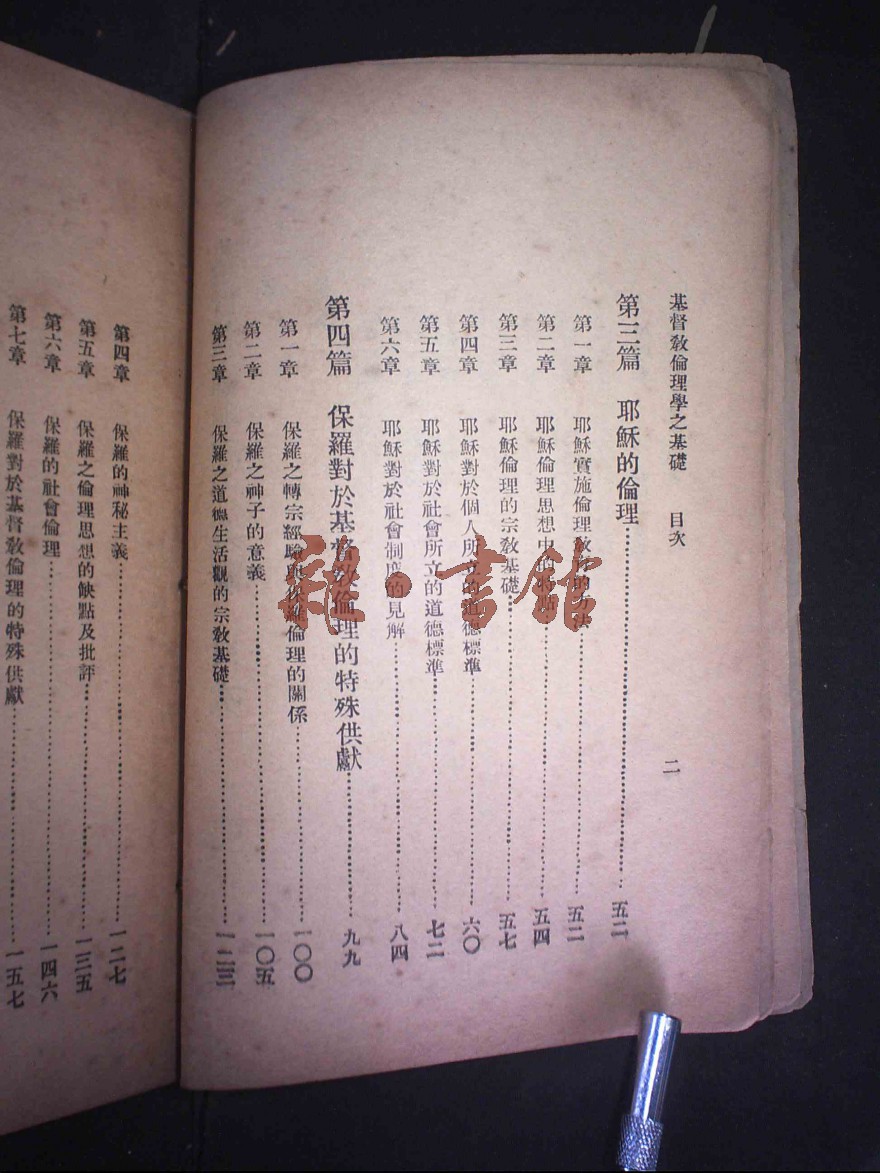 基督敎倫理學之基礎 目次 二
第三篇 耶穌的倫理 五二
第一章 耶穌實施倫理敎育的方法 五二
第二章 耶穌倫理思想中的特點 五四
第三章 耶穌倫理的宗敎基礎 五七
第四章 耶穌對於個人所立的道德標準 六〇
第五章 耶穌對於社會所立的道德標準 七二
第六章 耶穌對於社會制度的見解 八四
第四篇 保羅對於基督敎倫理的特殊供獻 九九
第一章 保羅之轉宗經驗與保羅倫理的關係 一〇〇
第二章 保羅之神子的意義 一〇五
第三章 保羅之道德生活觀的宗敎基礎 一二三
第四章 保羅的神秘主義 一二七
第五章 保羅之倫理思想的缺點及批評 一三五
第六章 保羅的社會倫理 一四六
第七章 保羅對於基督敎倫理的特殊供獻 一五七
雜·書館